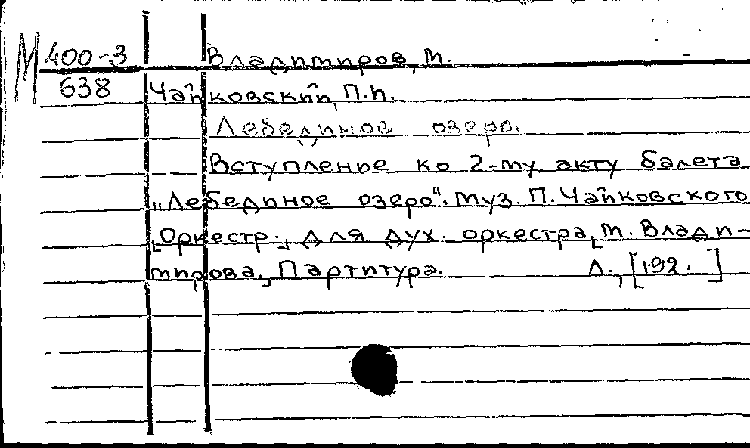 М 400-3 Владимиров, М.
638 Чайковский, П.И.
Лебединое озеро.
Вступление ко 2-му акту балета
„Лебединое озеро". Муз. П. Чайковского
[Оркестр.] для дух. оркестра [М. Влади-
мирова.] Партитура. Л., [192. ]